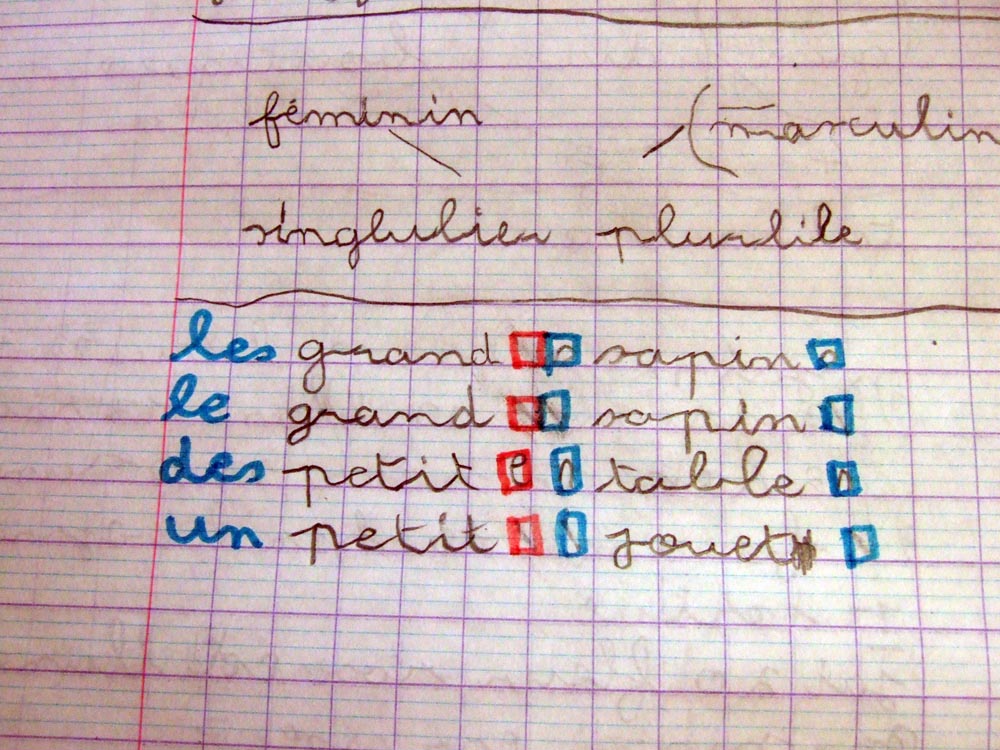 féminin (masculin
singlulier plurlile
les grands sapins
le grand sapin
des petites tables
un petit jouet